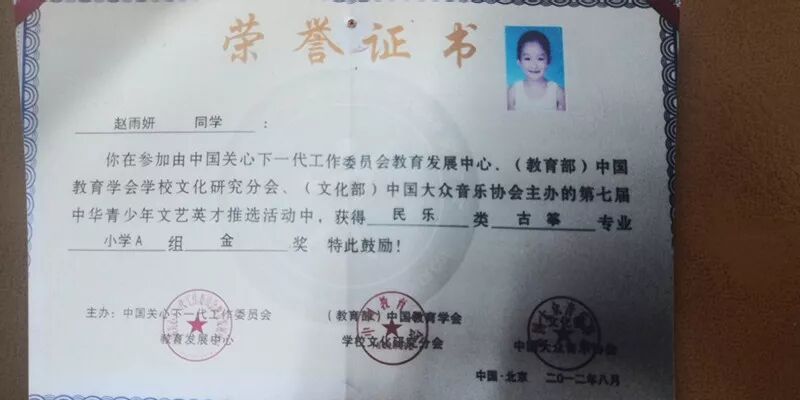 荣誉证书
赵雨妍 同学 :
你在参加由中国关心下一代工作委员会教育发展中心、(教育部)中国
教育学会学校文化研究分会、(文化部)中国大众音乐协会主办的第七届
中华青少年文艺英才推选活动中,获得 民乐 类 古筝 专业
小学A 组 金 奖 特此鼓励!
主办:中国关心下一代工作委员会 (教育部)中国教育学会
教育发展中心 学校文化研究分会 中国大众音乐协会
中国·北京 二〇一二年八月